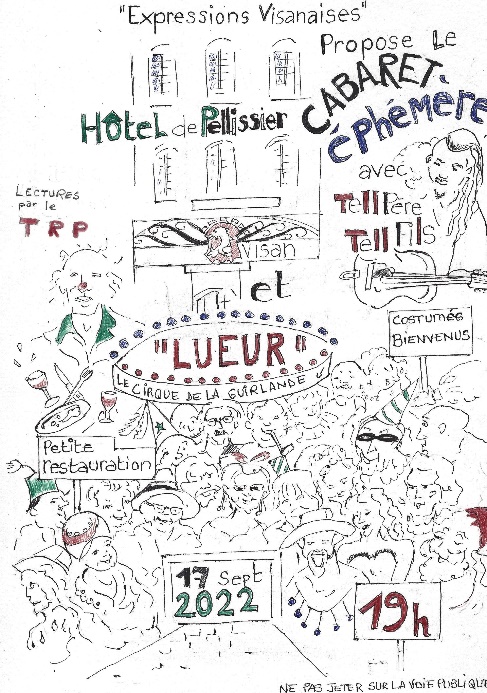 "Expressions Visanaises"
Propose Le
CABARET
éphémère
Hôtel de Pellissier
avec
Tell Père
Tell Fils
LECTURES
par le
TRP
Visan
et
COSTUMÉS
BIENVENUS
"LUEUR"
LE CIRQUE DE LA GUIRLANDE
Petite
restauration
17 Sept
2022
19h
NE PAS JETER SUR LA VOIE PUBLIQUE